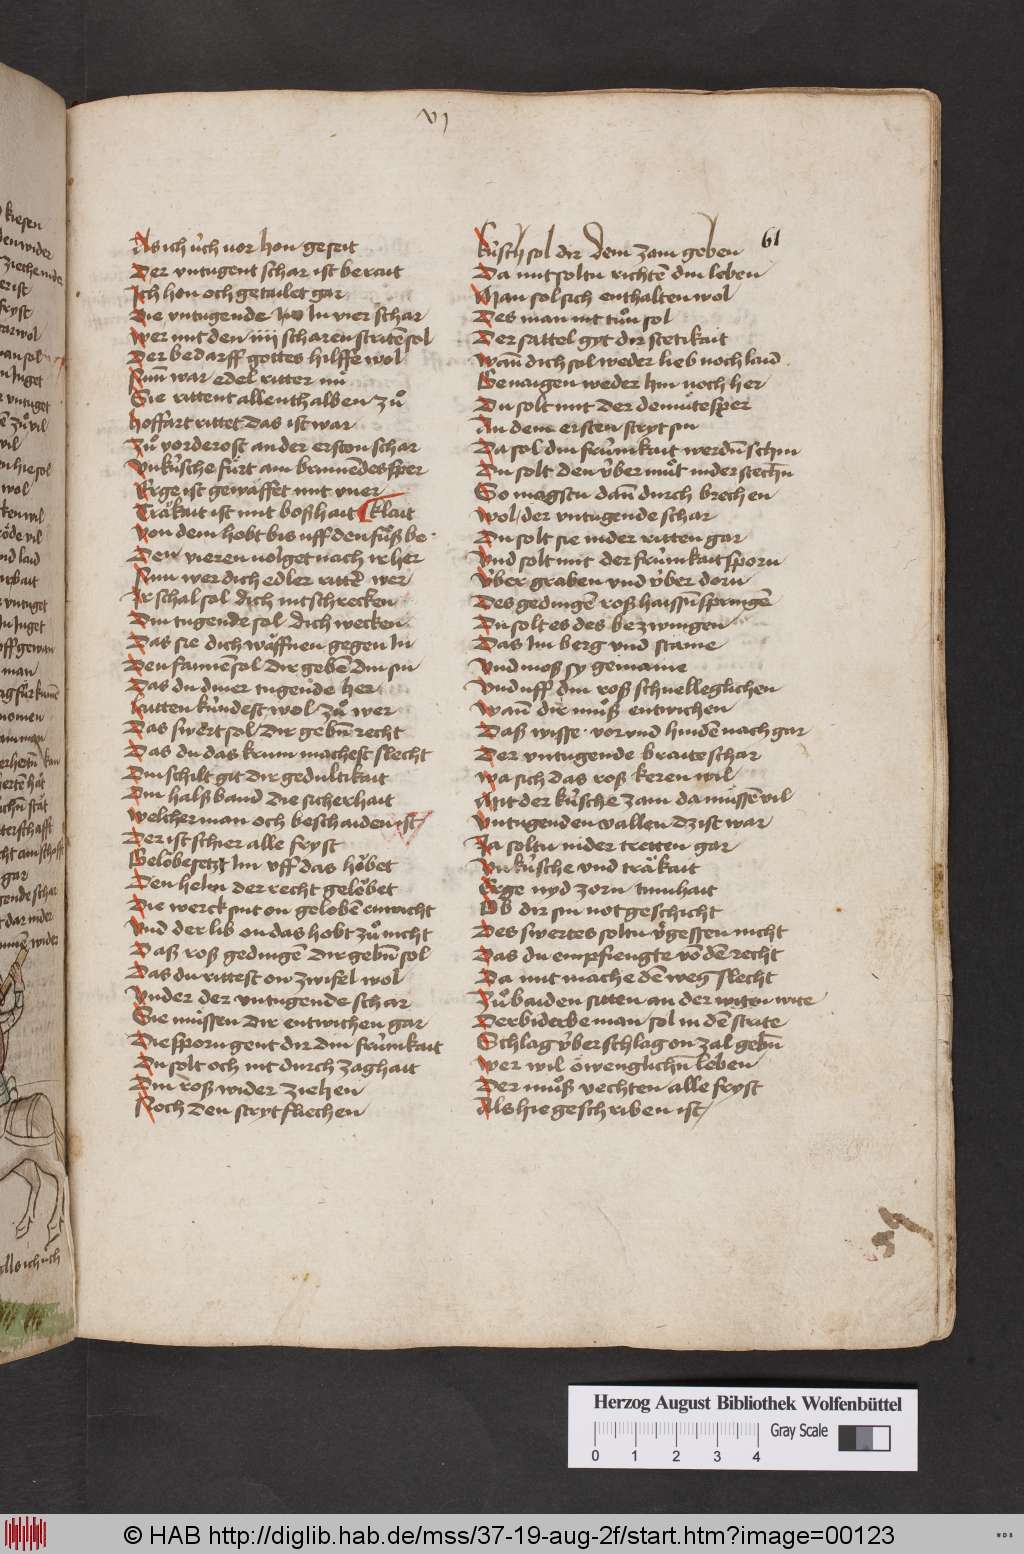 vj
61
Als ich úch vor hon geseit
Der vntugent schar ist berait
Ich hon och getailet gar
Die vntugende In vier schar
Wer mit den iiij scharen stritē sol
Der bedarff gottes hilffe wol
Nuñ war edel ritter nu
Sie rittent allenthalben zů
hoffart rittet das ist war
Zů vorderost an der ersten schar
Vnkúsche fúrt ain brinnēdes sper
Erge ist gewäffet mit vner
Träkait ist mit boßhait klait
Von dem hobt bis uff den fůß be
Den vieren volget nach ir her
Nun wer dich edler rittē wer
Ir schal sol dich nit schrecken
Din tugende sol dich wecken
Das sie dich wäffnen gegen In
Den fannē sol dir gebē din sin
Das du diner tugende her
hutten kúndest wol zů wer
Das swert sol dir gebñ recht
Das du das krum machest slecht
Din schilt git dir gedultikait
Din halß band die sicherhait
Welcher man och beschaiden ist
Der ist schier alle fryst
Gelöbe setzt Im vff das höbet
Den helm der recht gelöbet
Die werck sint on gelobē enwicht
Vnd der lib on das hobt zů nicht
Daß roß gedingē dir gebñ sol
Das du rittest on zwifel wol
Vnder der vntugende schar
Sie müssen dir entwichen gar
Die sporn gent dir din frúmkait
Du solt och nit durch zaghait
Din roß wider ziehen
Noch den stryt fliechen
kúsch sol dir dem zam geben
Da mit soltu richtē din leben
Man sol sich enthalten wol
Des man nit tůn sol
Der sattel gyt dir stetikait
Wañ dich sol weder lieb noch laid
Genaigen weder hin noch her
Du solt mit der demůte sper
An dem ersten stryt sin
Da sol din frúmkait werdñ schin
Du solt den úber můt nider stechñ
So magstu dañ durch brechen
Wol der vntugende schar
Du solt sie nider ritten gar
Vnd solt mit der frúmkait sporn
Úber graben vnd úber dorn
Des gedingē roß haissñ springē
Du solt es des bezwingen
Das Im berg vnd staine
Vnd moß sy gemaine
Vnd uff din roß schnelleglichen
Wañ dir můß entwichen
Daß wisse vor vnd hindē nach gar
Der vntugende braite schar
Wa sich das roß keren wil
Mit der kúsche zam da müssē vil
Vntugenden vallen dz ist war
Ja soltu nider tretten gar
Vnkúsche vnd träkait
Erge nyd zorn tumhait
Ob dir sin not geschicht
Des swertes soltu v̄gessen nicht
Das du empfiengte vō dē recht
Da mit mache dē weg slecht
Zů baiden sitten an der witen wite
Der biderbe man sol in dē strite
Schlag úber schlag on zal gebñ
Wer wil öwenglichñ leben
Der můß vechten alle fryst
Als hie geschriben ist
Herzog August Bibliothek Wolfenbüttel
Gray Scale
0 1 2 3 4
© HAB http://diglib.hab.de/mss/37-19-aug-2f/start.htm?image=00123